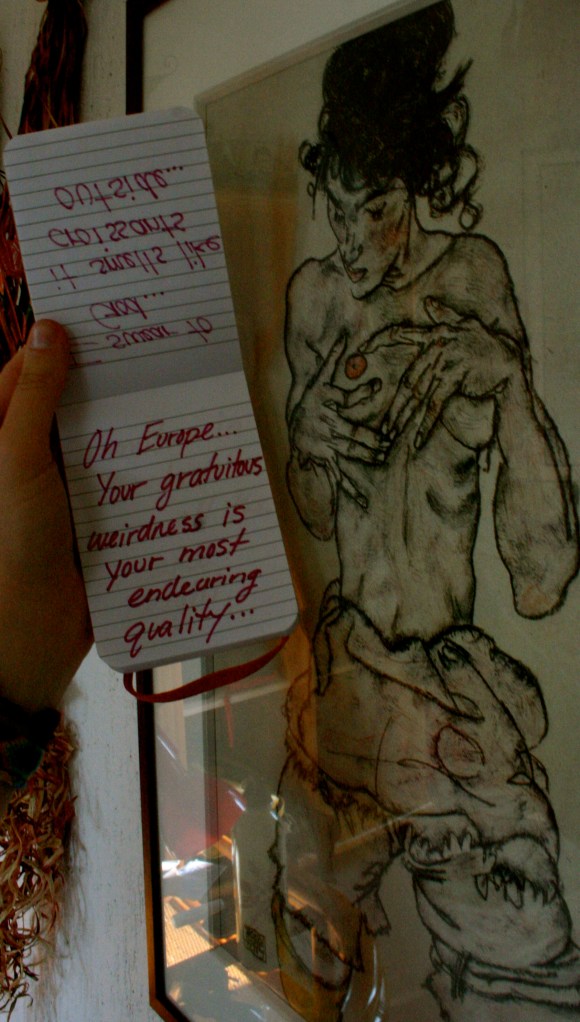 I swear to
God...
it smells like
croissants
outside...
Oh Europe...
Your gratuitous
weirdness is
your most
endearing
quality...